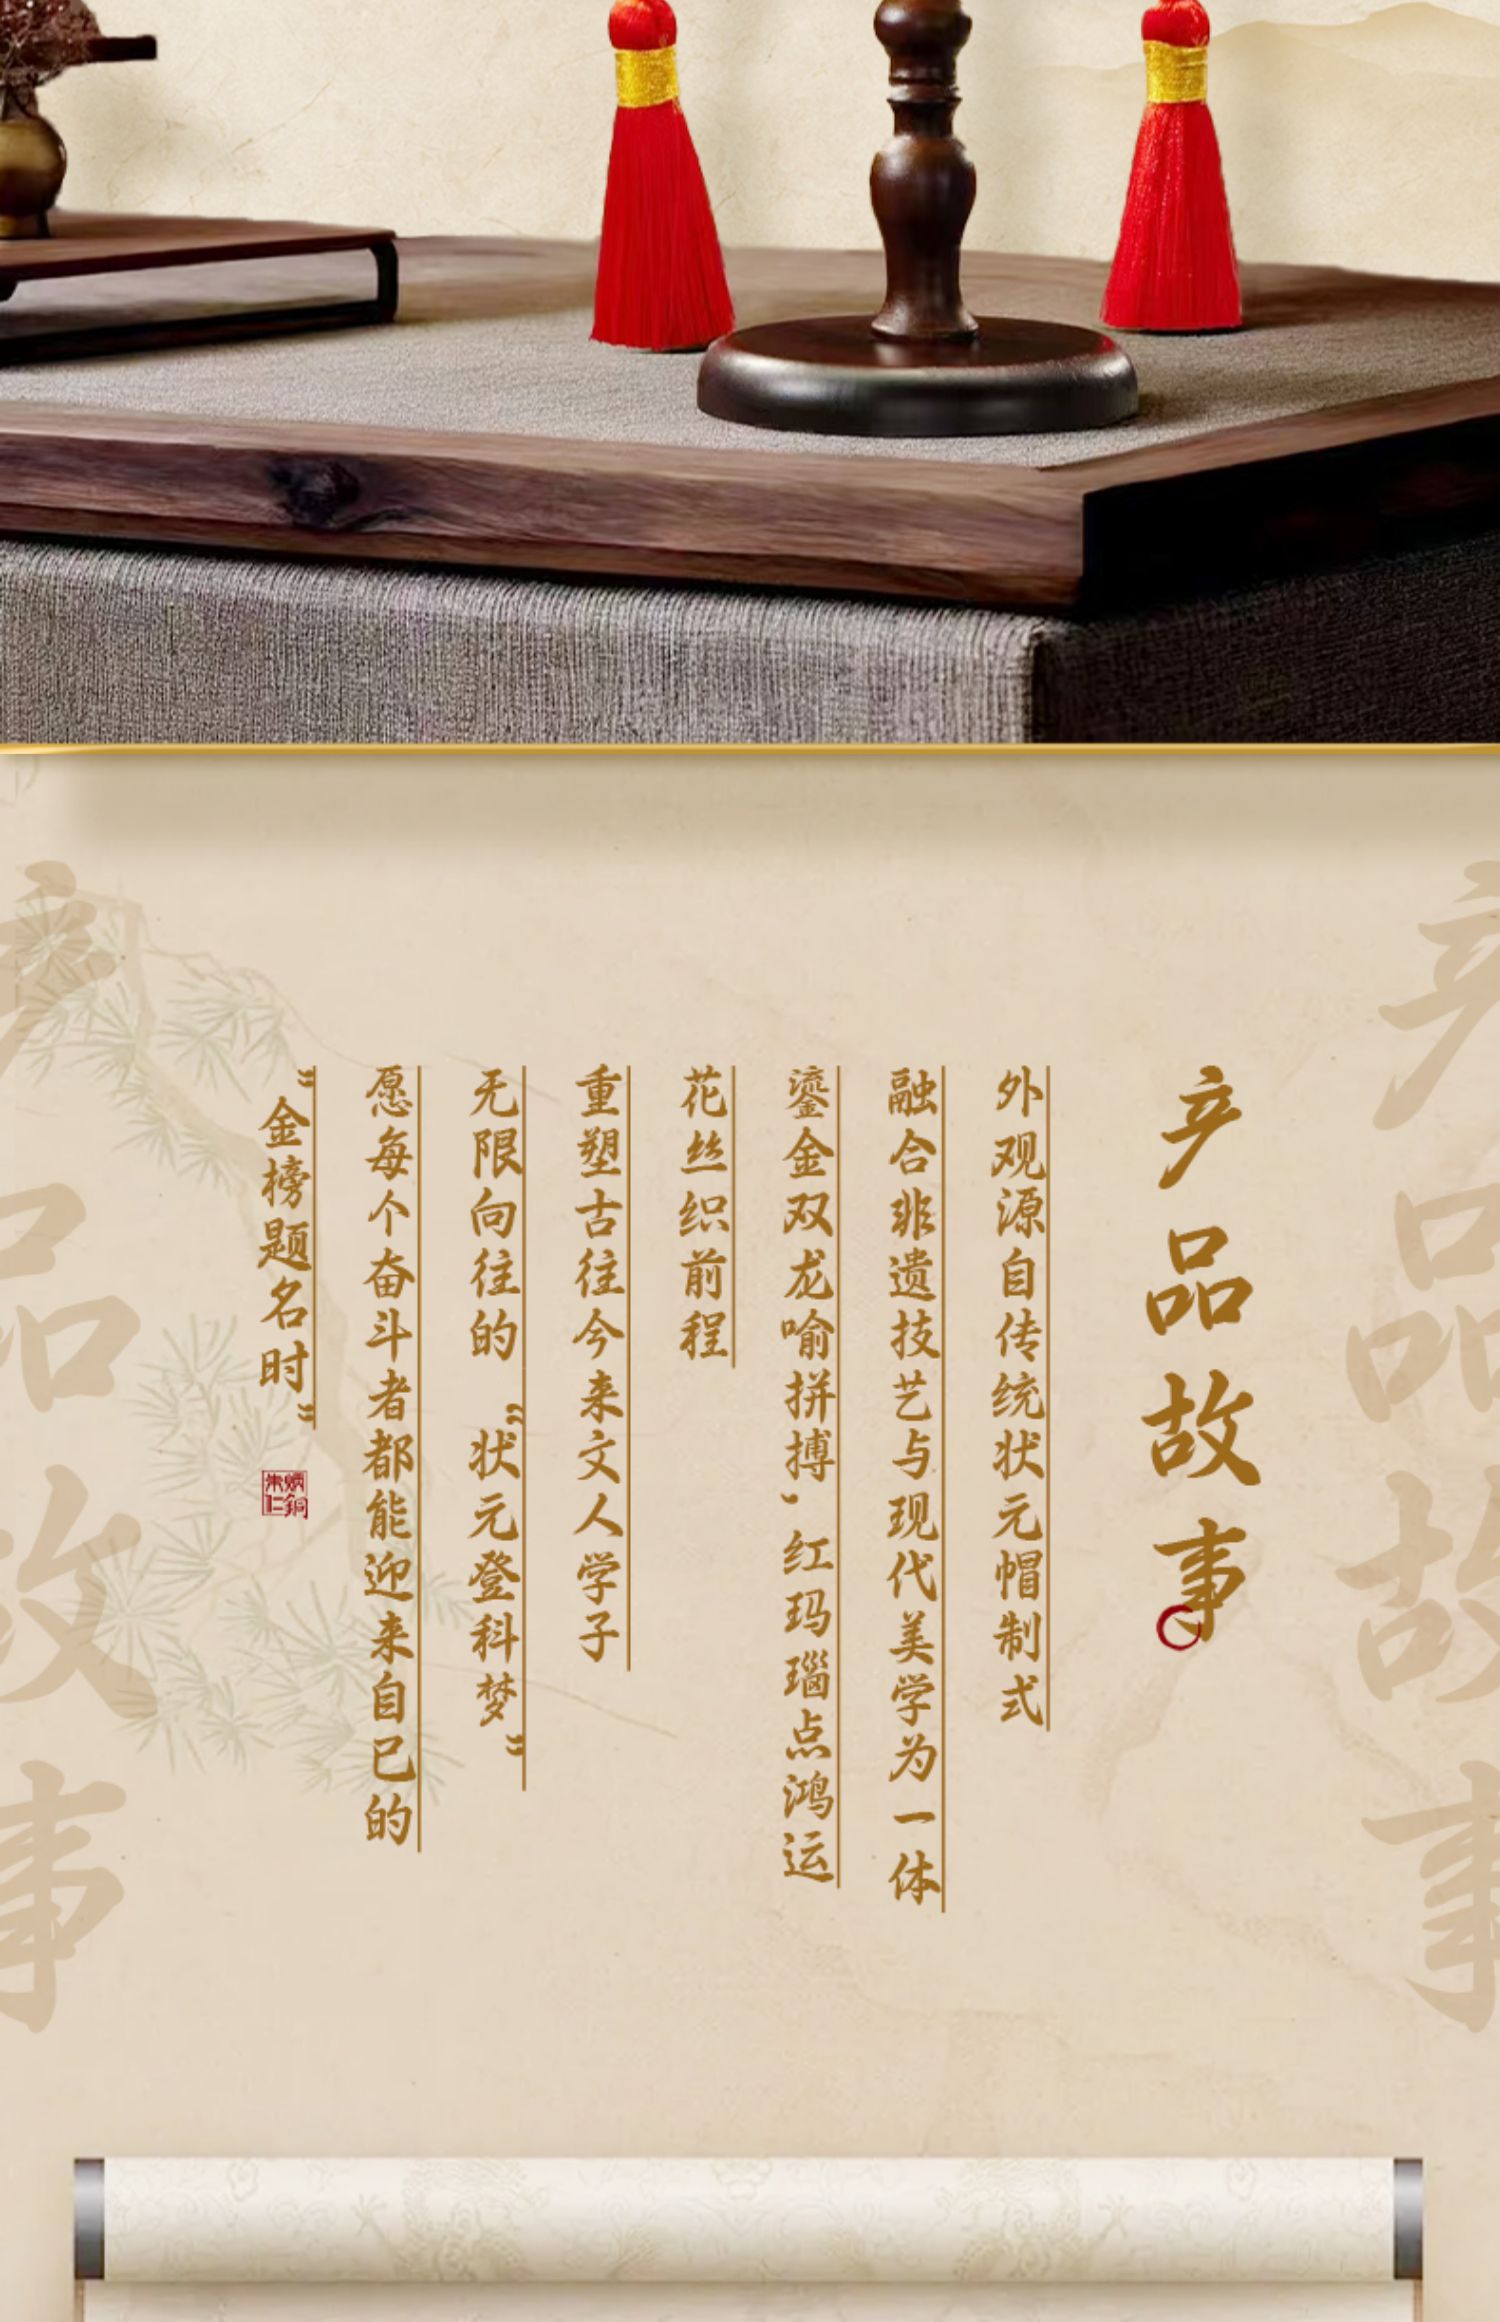 产品故事
外观源自传统状元帽制式
融合非遗技艺与现代美学为一体
鎏金双龙喻拼搏，红玛瑙点鸿运
花丝织前程
重塑古往今来文人学子
无限向往的“状元登科梦”
愿每个奋斗者都能迎来自己的
“金榜题名时”
朱炳仁銅
产品故事
产品故事